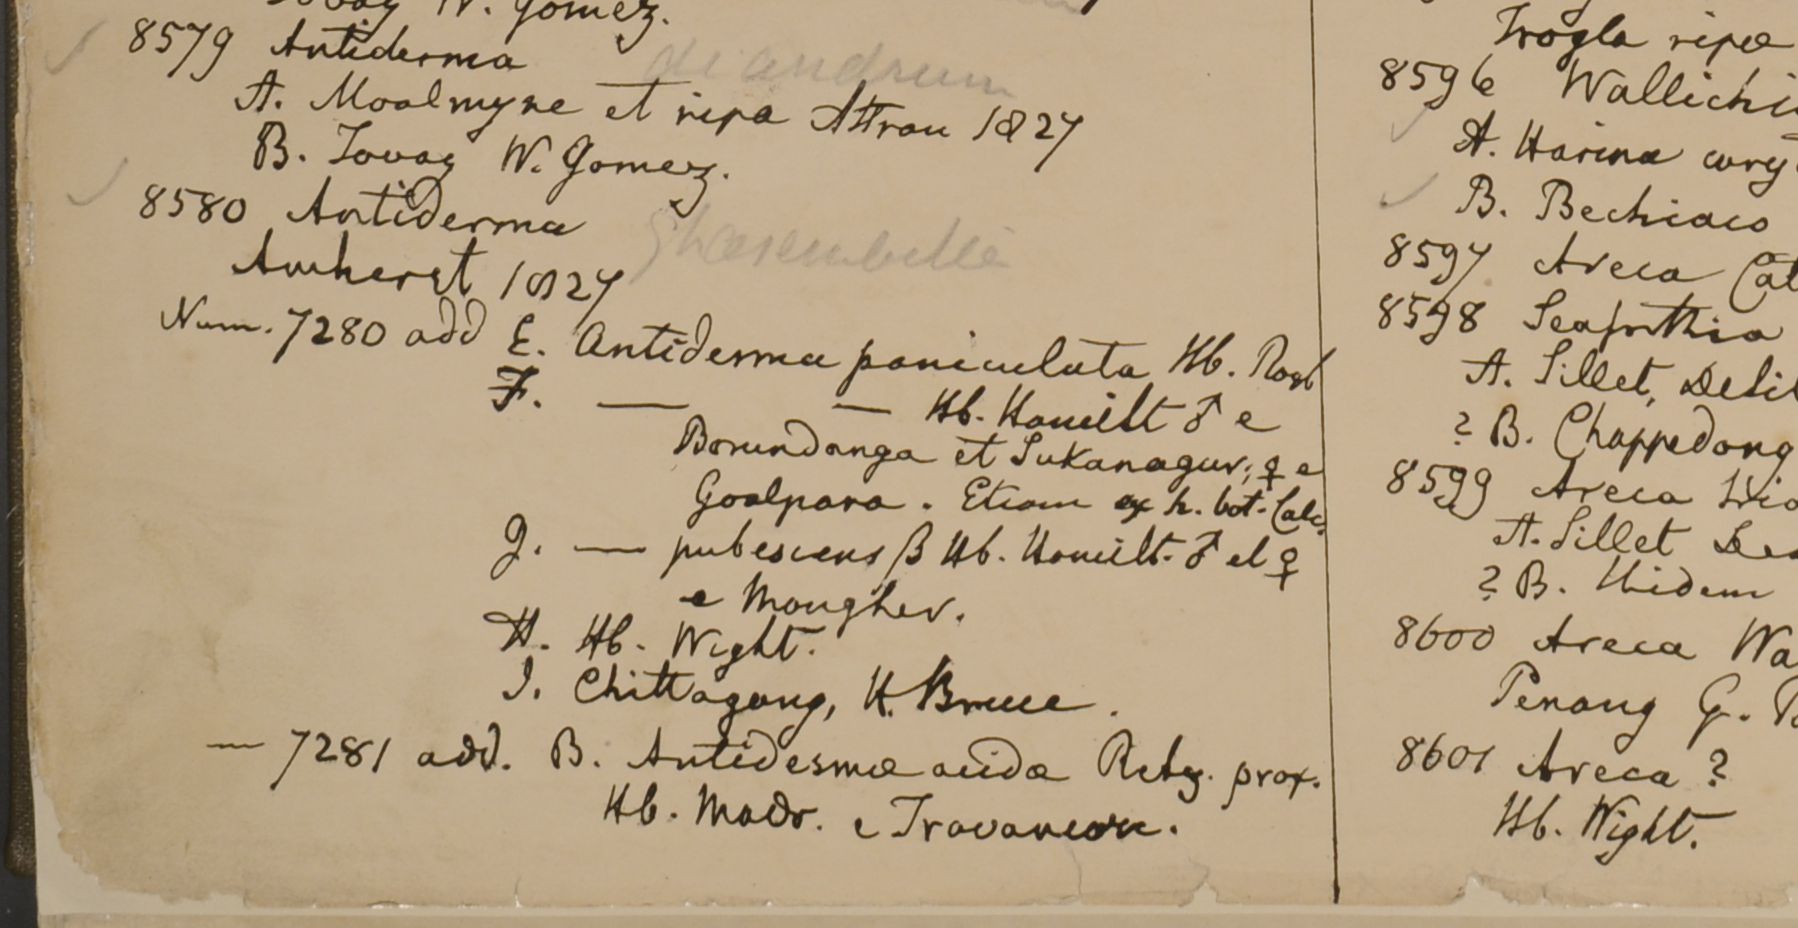 W. Gomez.
8579 Antiderma diandrum
A. Moalmyne et ripa Attran 1827
B. Tovay W. Gomez.
8580 Antiderma Ghaesembille
Amherst 1827
Num. 7280 add E. Antiderma paniculata Hb. Roxb
F. — — Hb. Hamilt ♂ e
Borundonga et Sukanagur, ♀ e
Goalpara. Etiam ex h. bot. Calc.
G. — pubescens β Hb. Hamilt. ♂ et ♀
e Mongher.
H. Hb. Wight.
I. Chittagong, H. Bruce.
— 7281 add. B. Antidesma acida Retz. prox.
Hb. Madr. e Travancore.
Trogla ripa
8596 Wallichi
A. Harina cary
B. Bechiaco
8597 Areca Cat
8598 Seaforthia
A. Sillet, Desil
? B. Chappedong
8599 Areca
A. Sillet
? B. Ibidem
8600 Areca Wa
Penang G. P
8601 Areca ?
Hb. Wight.